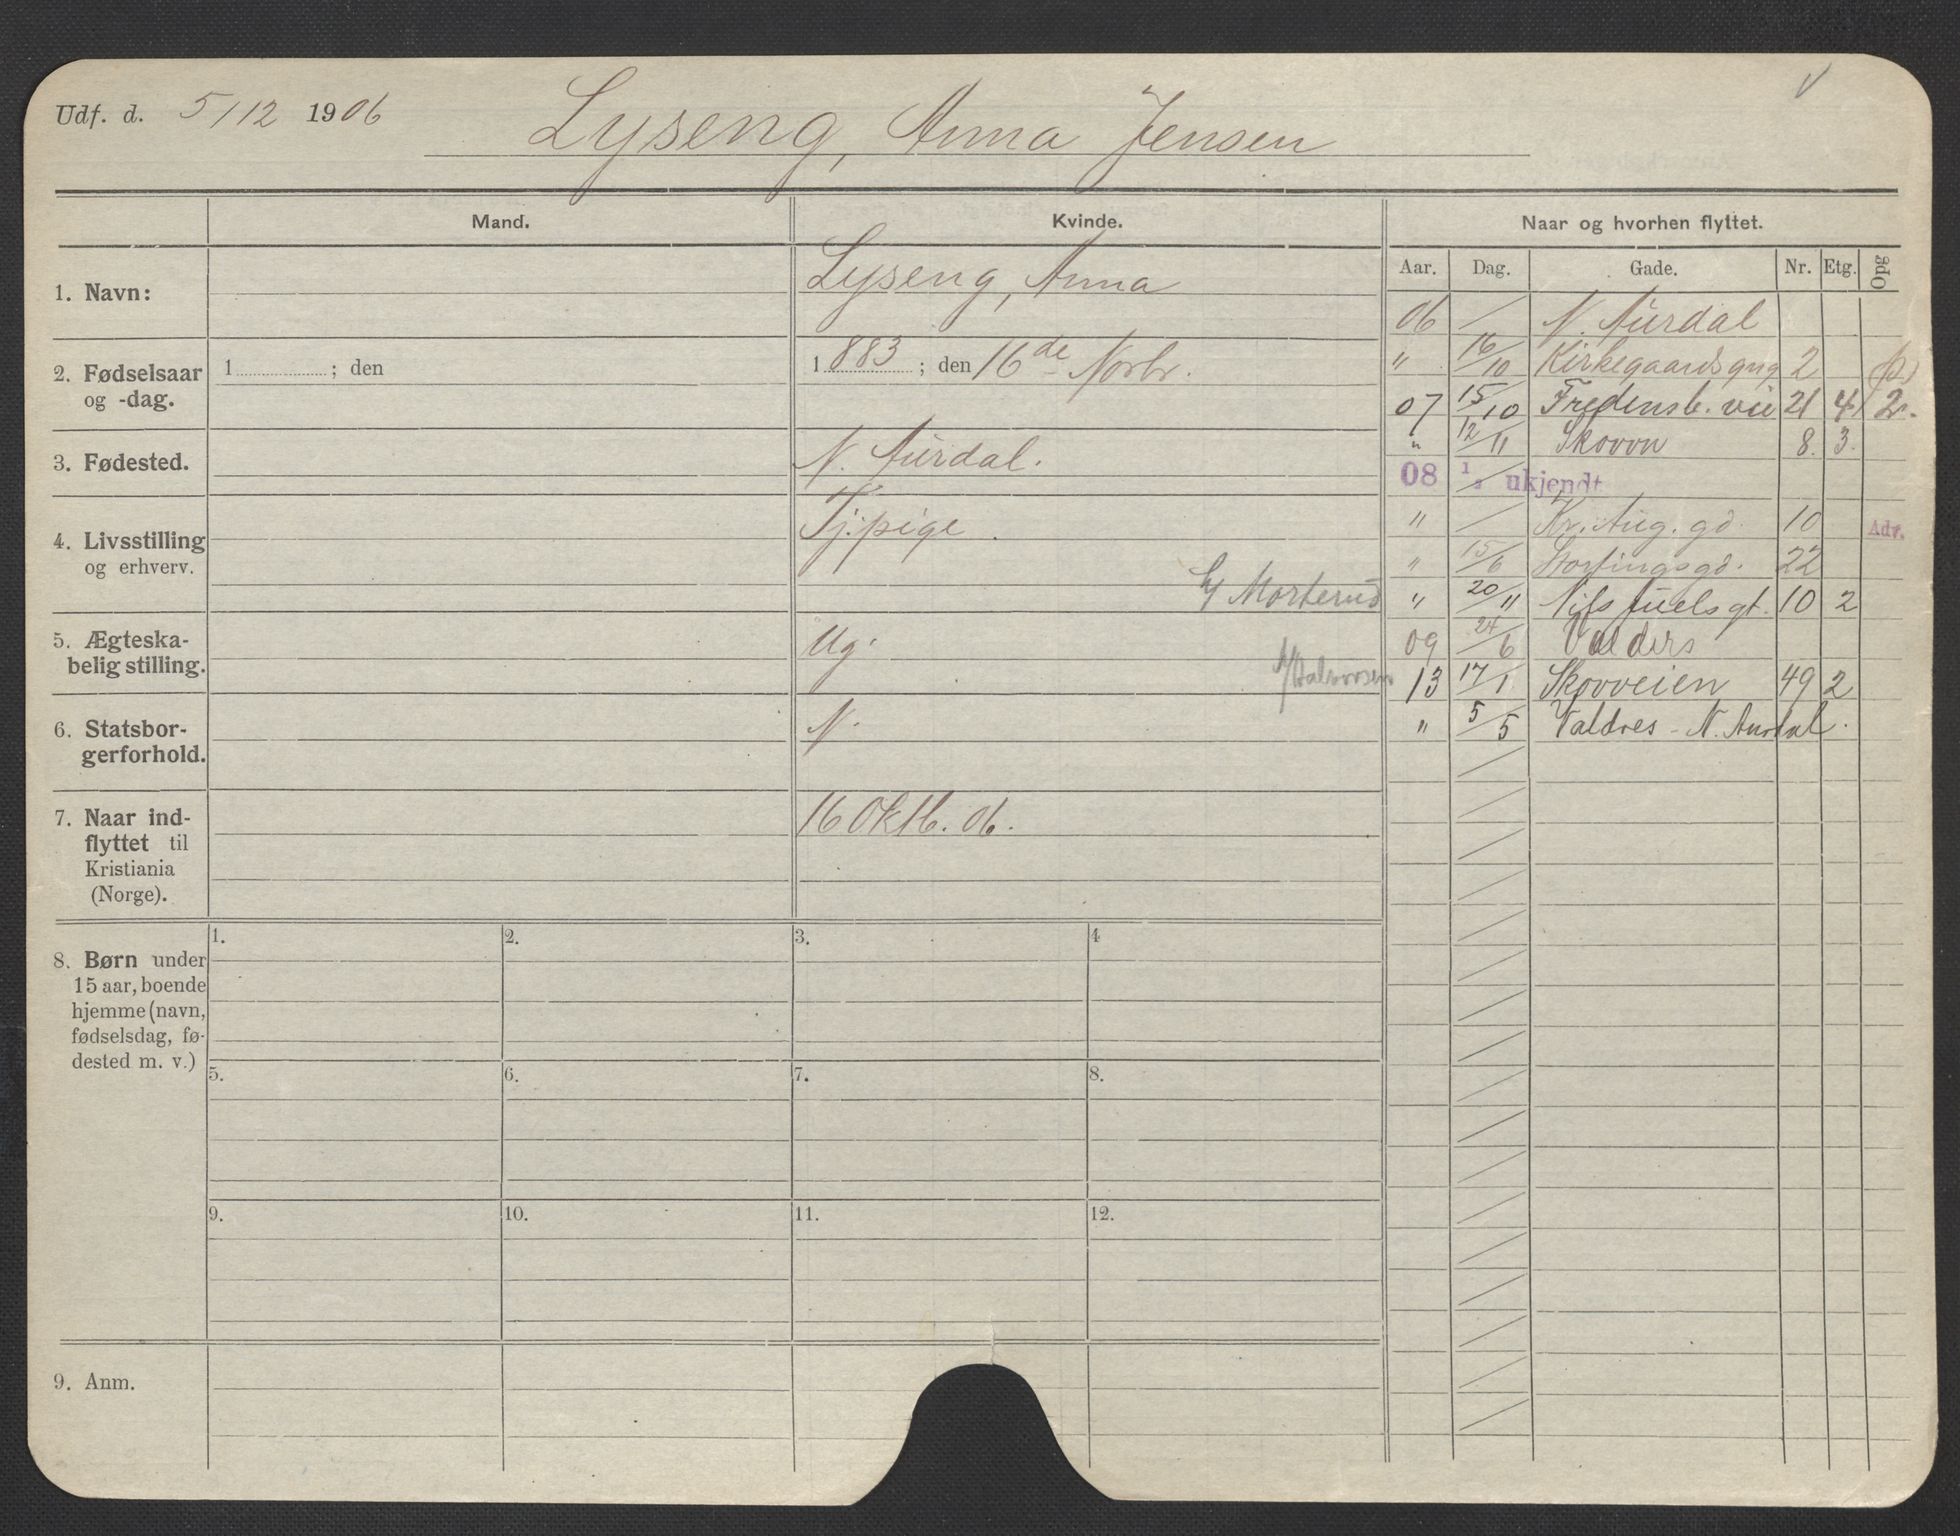 Udf. d. 5/12 1906 Lyseng, Anna Jensen
Mand. Kvinde. Naar og hvorhen flyttet.
Aar. Dag. Gade. Nr. Etg. Opg
1. Navn: Lyseng, Anna
2. Fødselsaar og -dag. 1 ; den 1883 ; den 16de Novbr.
3. Fødested. N. Aurdal.
4. Livsstilling og erhverv. Tj.pige.
h/ Morterud
5. Ægteska-
belig stilling. Ug.
h/ Halvorsen
6. Statsbor-
gerforhold. N.
7. Naar ind-
flyttet til
Kristiania
(Norge). 16 Oktb. 06.
06 / N. Aurdal
" 16/10 Kirkegaardsgng 2 (p.)
07 15/10 Fredensb. vei 21 4 2.
" 12/11 Skovvn 8. 3.
08 1/ ukjendt
" / Kr. Aug. gd. 10 Adv.
" 15/6 Stortingsgd. 22
" 20/11 Nils Juels gt. 10 2
09 24/6 Valders
13 17/1 Skovveien 49 2
" 5/5 Valdres - N. Aurdal.
8. Børn under
15 aar, boende
hjemme (navn,
fødselsdag, fø-
dested m. v.)
1. 2. 3. 4
5. 6. 7. 8.
9. 10. 11. 12.
9. Anm.